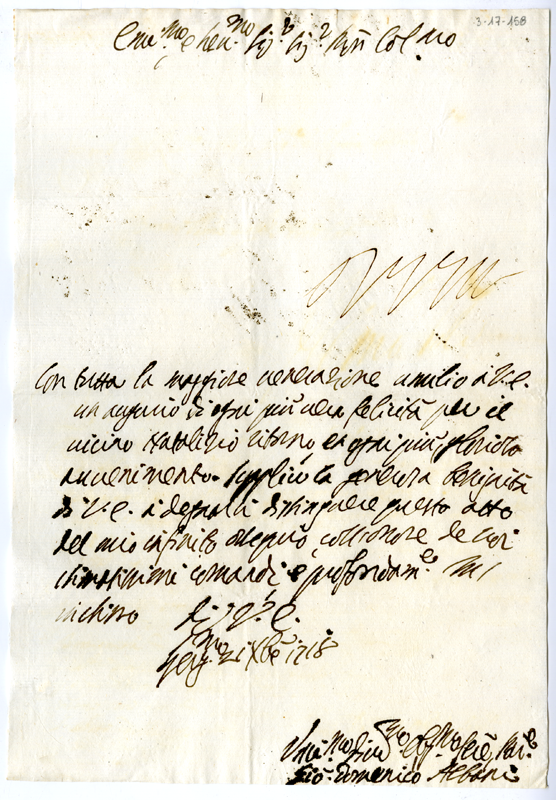 3-17-158
Emi.mo e Rev.mo Sig.r Sig.r Pñ Col.mo
Con tutta la maggiore venerazione umilio à V.E.
un augurio di ogni più vera felicità per il
vicino Natalizio ritorno, et ogni più glorioso
avvenimento. Supplico la benignità
di V.E. à degnarsi distinguere questo atto
del mio infinito ossequio, coll'onore de suoi
stimatissimi comandi, e profondam.e mi
inchino
Di V.E.
21 Xbre 1718
Umi.mo Div.mo Obl.mo
Gio: Domenico Albani